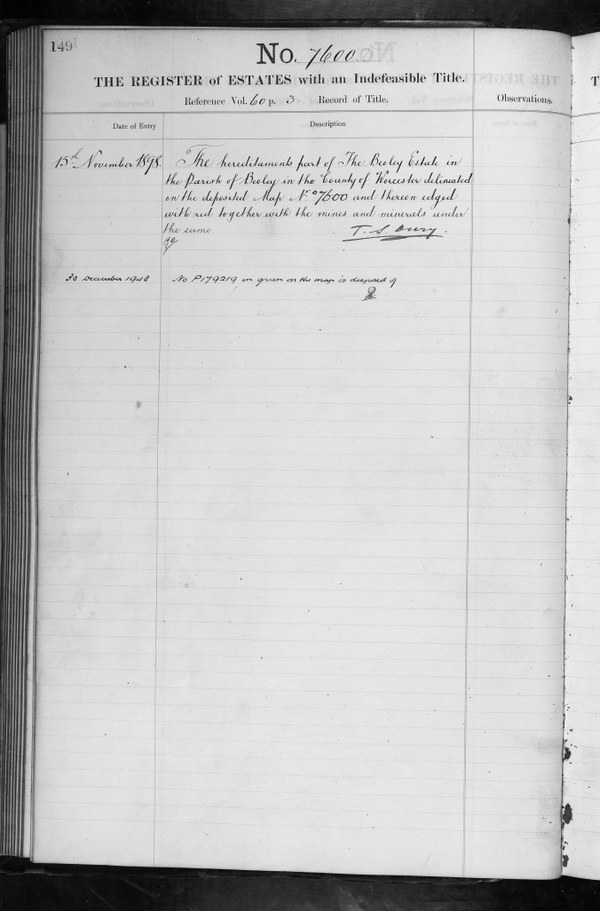 149
No. 7600
THE REGISTER of ESTATES with an Indefeasible Title.
Reference Vol. 60 p. 3 Record of Title.
Observations.
Date of Entry
Description
15th November 1898.
The hereditaments part of The Beoley Estate in
the Parish of Beoley in the County of Worcester delineated
on the deposited Map No. 7600 and thereon edged
with red together with the mines and minerals under
the same.
30 December 1948
No P179219 in green on the map is disposed of